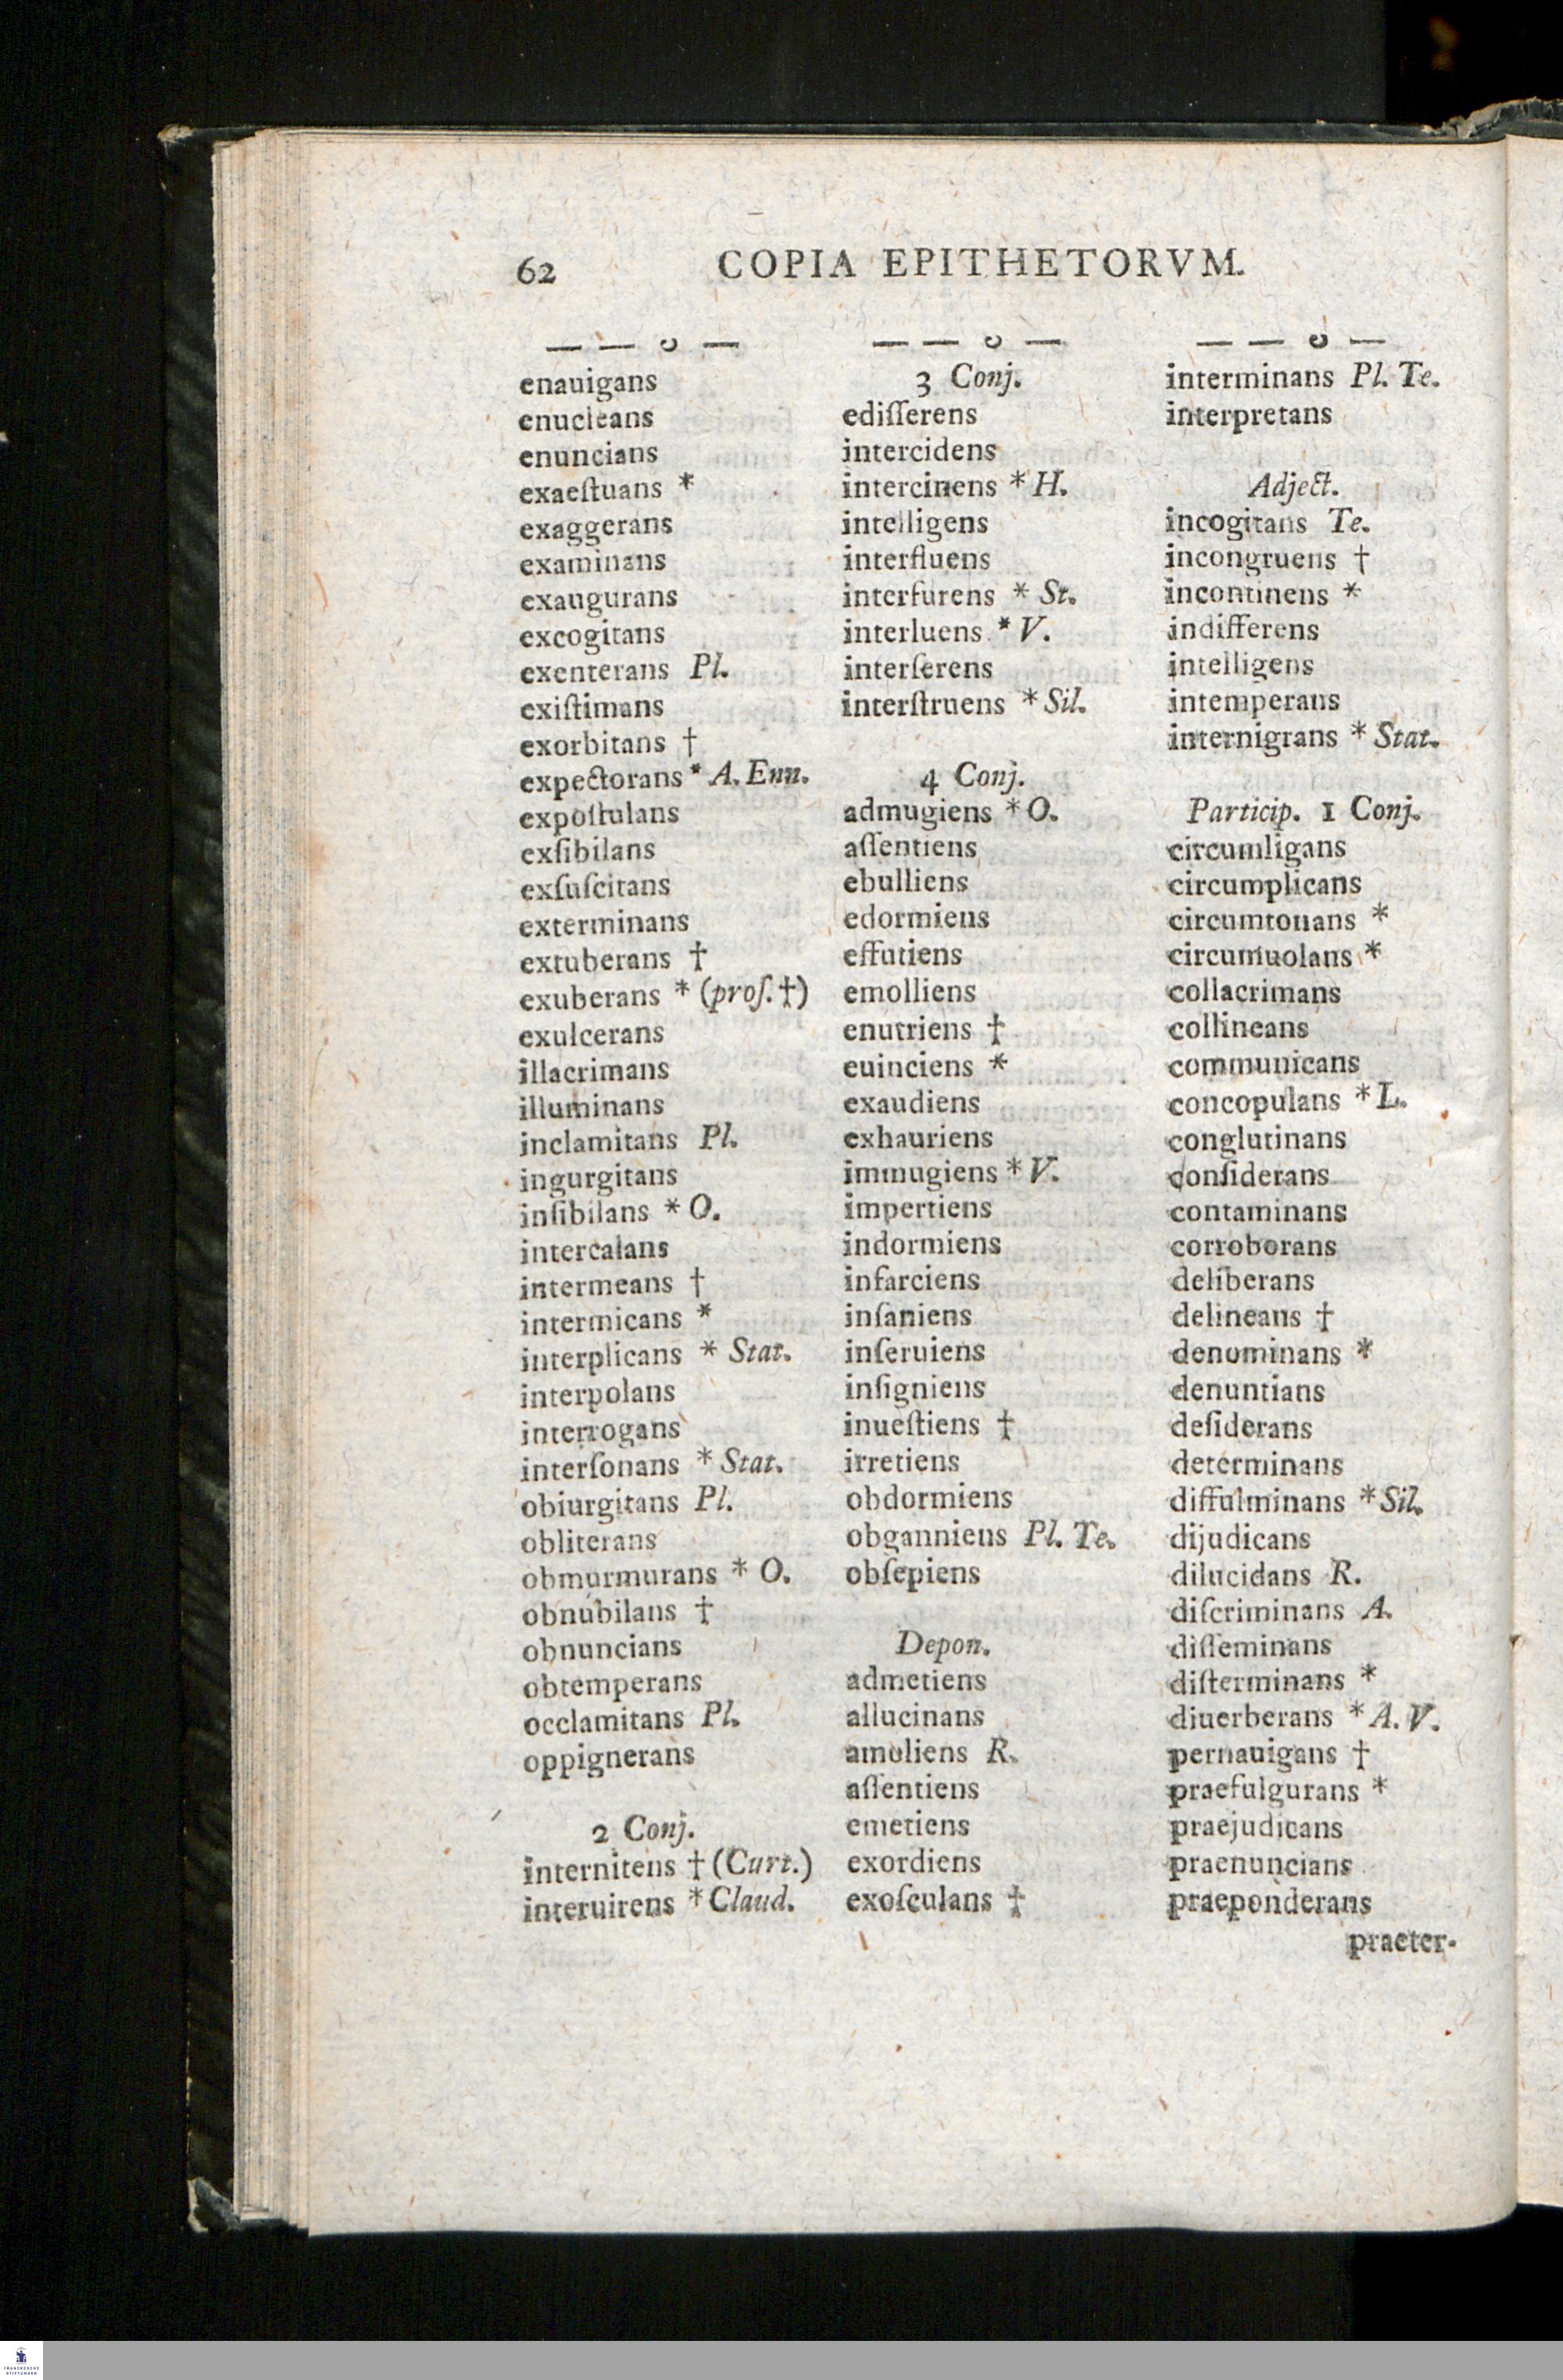 62 COPIA EPITHETORVM.
— — ᴗ —
enauigans
enucleans
enuncians
exaeſtuans *
exaggerans
examinans
exaugurans
excogitans
exenterans Pl.
exiſtimans
exorbitans †
expectorans * A. Enn.
expoſtulans
exſibilans
exſuſcitans
exterminans
extuberans †
exuberans * (proſ. †)
exulcerans
illacrimans
illuminans
inclamitans Pl.
ingurgitans
inſibilans * O.
intercalans
intermeans †
intermicans *
interplicans * Stat.
interpolans
interrogans
interſonans * Stat.
obiurgitans Pl.
obliterans
obmurmurans * O.
obnubilans †
obnuncians
obtemperans
occlamitans Pl.
oppignerans
2 Conj.
internitens † (Curt.)
interuirens * Claud.
— — ᴗ —
3 Conj.
ediſſerens
intercidens
intercinens * H.
intelligens
interfluens
interfurens * St.
interluens * V.
interſerens
interſtruens * Sil.
4 Conj.
admugiens * O.
aſſentiens
ebulliens
edormiens
effutiens
emolliens
enutriens †
euinciens *
exaudiens
exhauriens
immugiens * V.
impertiens
indormiens
infarciens
inſaniens
inſeruiens
inſigniens
inueſtiens †
irretiens
obdormiens
obganniens Pl. Te.
obſepiens
Depon.
admetiens
allucinans
amoliens R.
aſſentiens
emetiens
exordiens
exoſculans †
— — ᴗ —
interminans Pl. Te.
interpretans
Adject.
incogitans Te.
incongruens †
incontinens *
indifferens
intelligens
intemperans
internigrans * Stat.
Particip. 1 Conj.
circumligans
circumplicans
circumtonans *
circumuolans *
collacrimans
collineans
communicans
concopulans * L.
conglutinans
conſiderans
contaminans
corroborans
deliberans
delineans †
denominans *
denuntians
deſiderans
determinans
diffulminans * Sil.
dijudicans
dilucidans R.
diſcriminans A.
diſſeminans
diſterminans *
diuerberans * A. V.
pernauigans †
praefulgurans *
praejudicans
praenuncians
praeponderans
praeter-
FRANCKESCHE
STIFTUNGEN